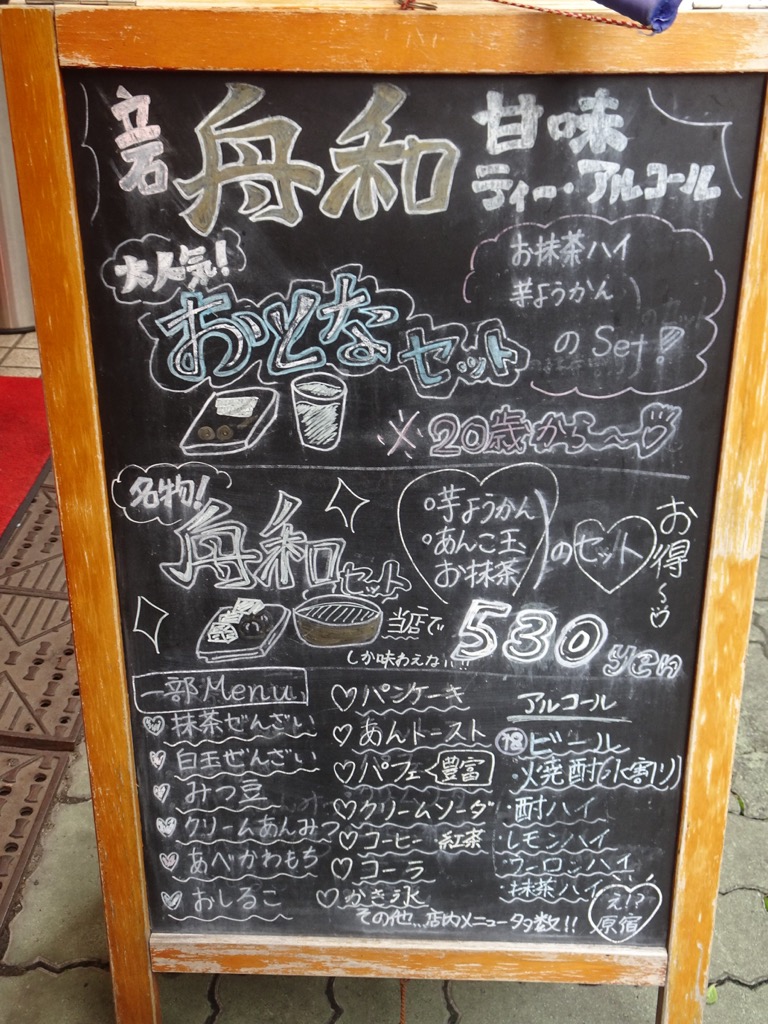 立石 舟和 甘味
ティー・アルコール
大人気!
おとなセット
お抹茶ハイ
芋ようかん
のSet!
※20歳から〜
名物!
舟和セット
芋ようかん
あんこ玉
お抹茶
のセット
お得〜
当店で
しか味わえない!!
530yen
一部Menu
抹茶ぜんざい
白玉ぜんざい
みつ豆
クリームあんみつ
あべかわもち
おしるこ
パンケーキ
あんトースト
パフェ<豊富
クリームソーダ
コーヒー 紅茶
コーラ
かき氷
その他…店内メニュー多数!!
アルコール
ビール
・焼酎(水割り)
・酎ハイ
・レモンハイ
ウーロンハイ
・抹茶ハイ
え!?
原宿